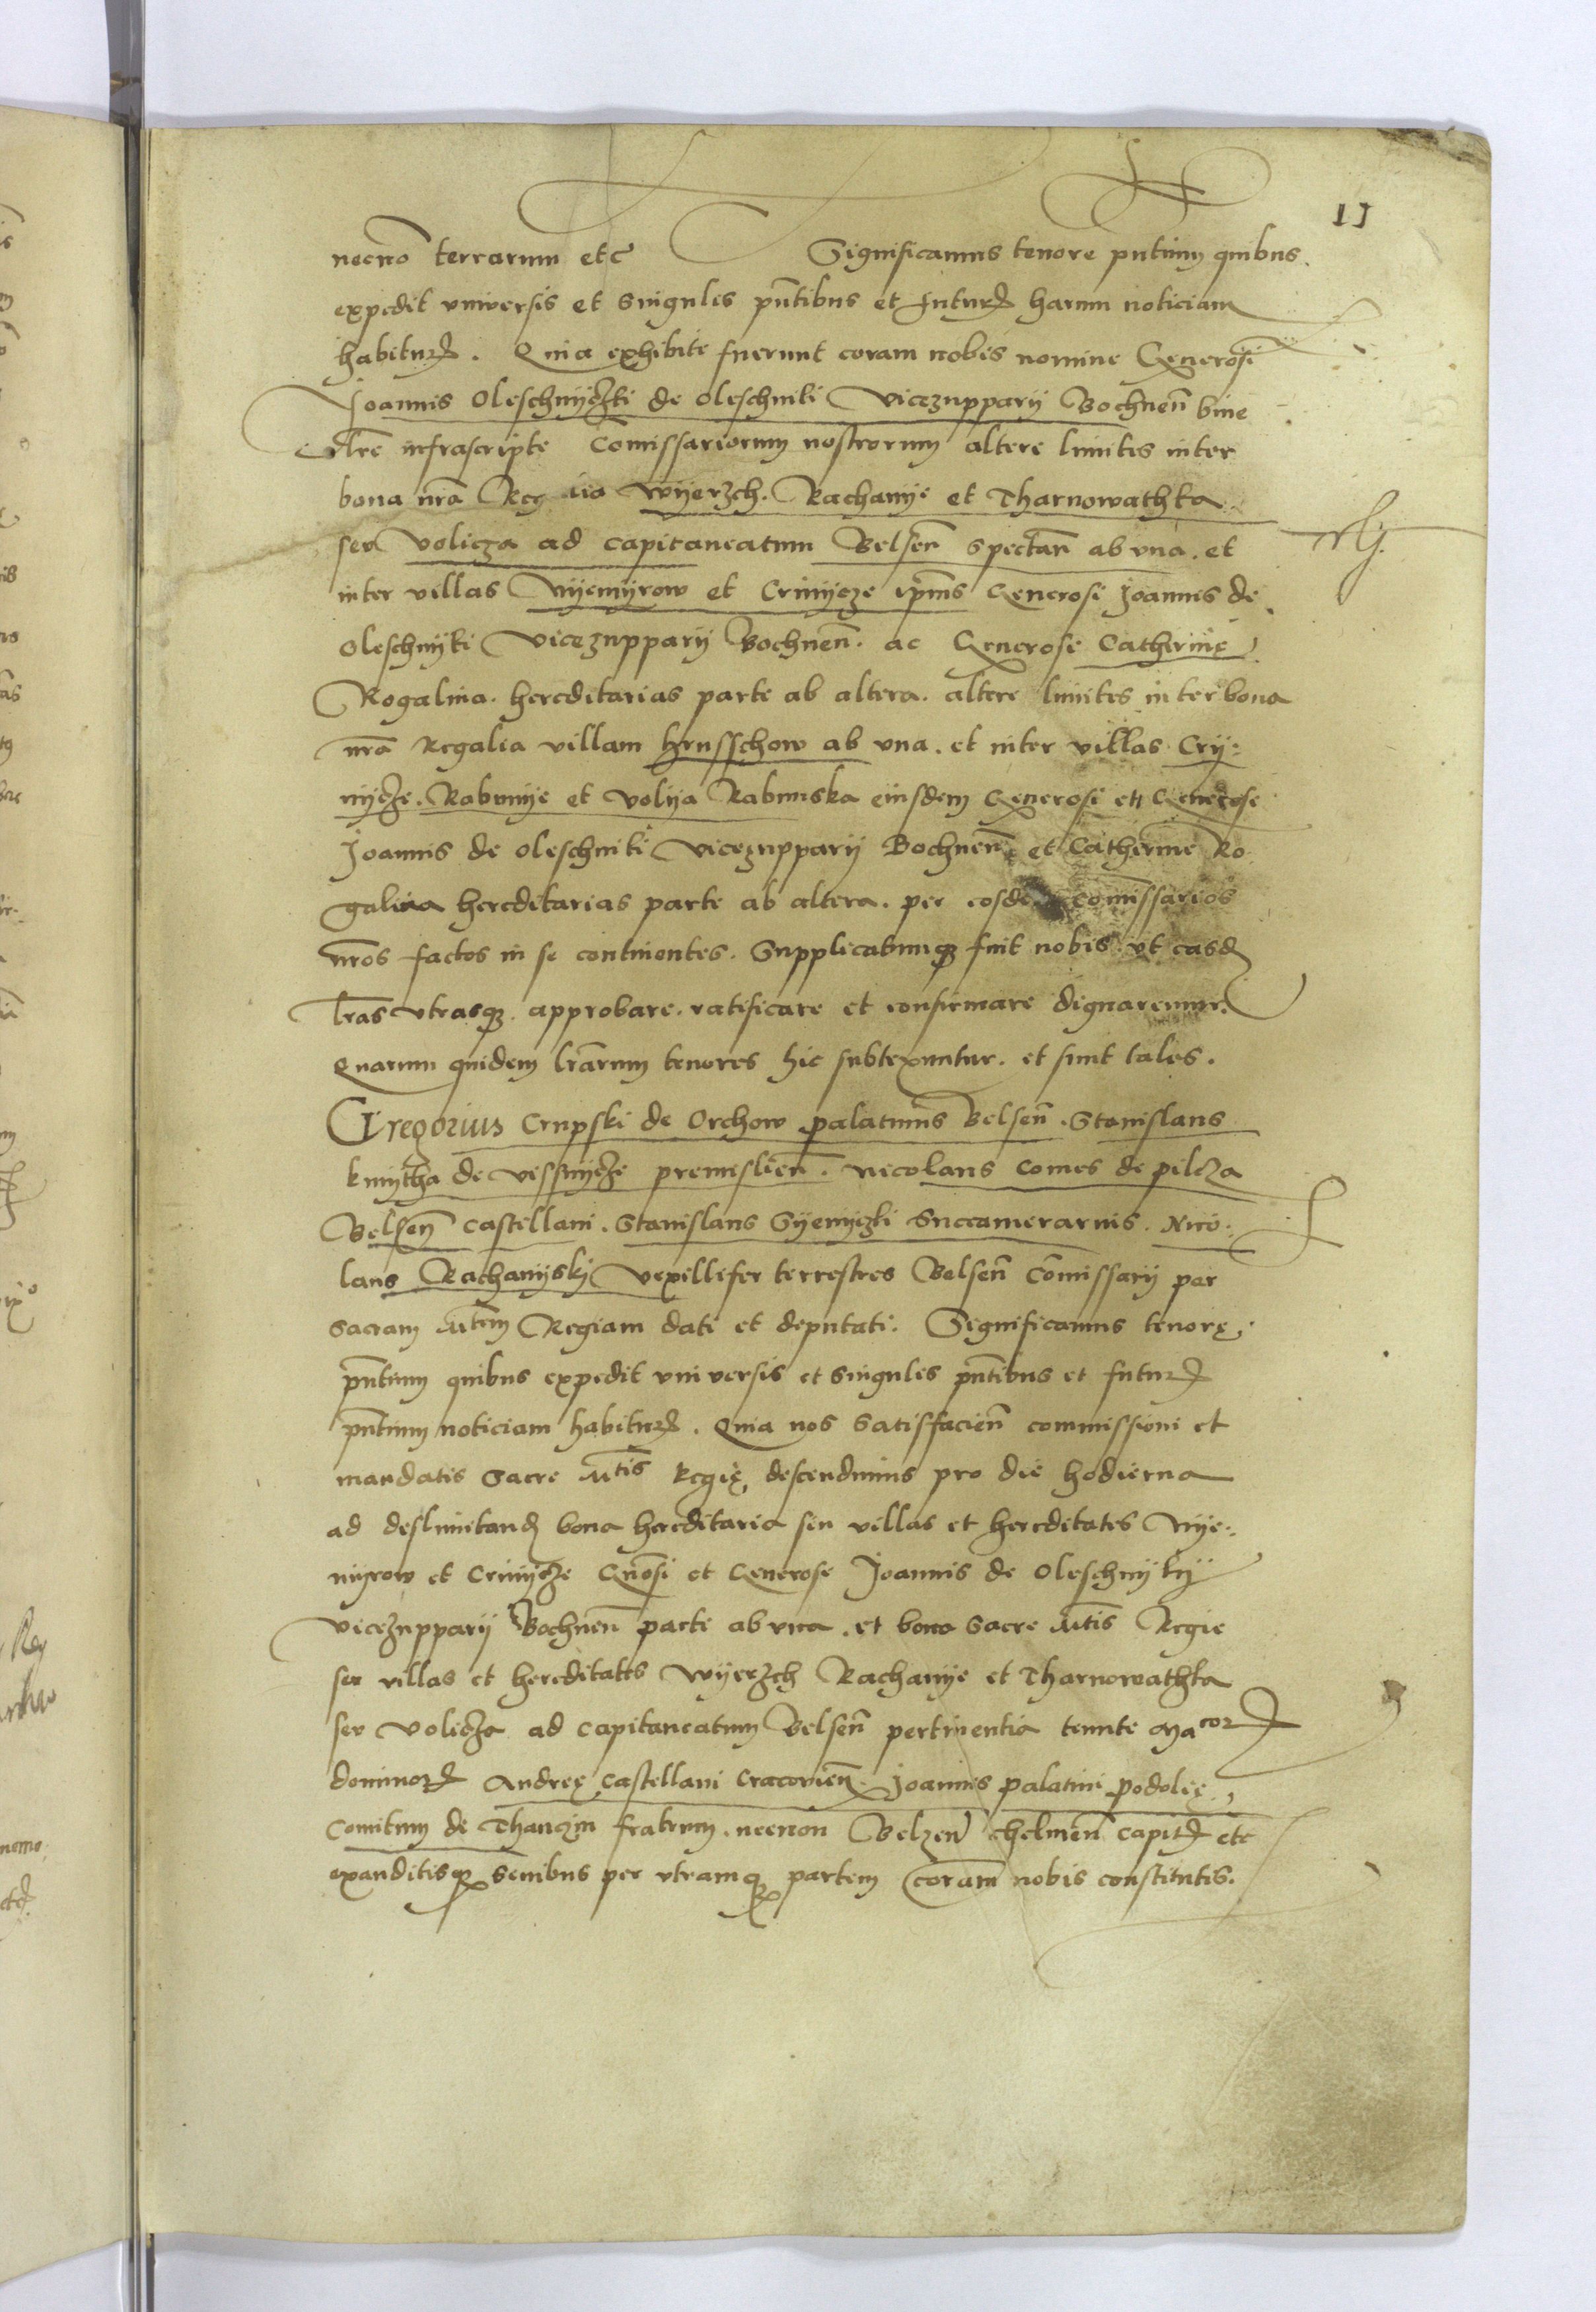 11
necnō terrarum etc Significamus tenore pñtium quibus
expedit vniversis et singulis pñtibus et futur harum noticiam
habitur. Quia exhibite fuerunt coram nobis nomine Generosi
Joannis Oleschnÿczki de Oleschniki Vicezupparÿ Bochneñ bine
Lr̃e infrascripte Com̃issariorum nostrorum altere limites inter
bona nr̃a Reg lia Wÿerzch. Rachanÿe et Tharnowathka
seu Volicza ad Capitaneatum Belseñ spectañ ab vna. et
inter villas Nÿemÿrow et Crinÿcze ip̃ius Generosi Joannis de
Oleschnÿki Vicezupparÿ Bochneñ. ac Generose Catherinę
Rogalina. hereditarias parte ab altera. altere limites inter bona
nr̃a Regalia villam Hrusschow ab vna. et inter villas Crÿ:
nÿcze. Rabunÿe et Volÿa Rabunska eiusdem Generosi et Generose
Joannis de Oleschniki Vicezupparÿ Bochneñ et Catherine Ro
galina hereditarias parte ab altera. per eosde com̃issarios
nr̃os factos in se continentes. Supplicatumq fuit nobis vt easd
lr̃as vtrasq. approbare. ratificare et confirmare dignaremur.
Quarum quidem lr̃arum tenores hic subtexuntur. et sunt tales.
Gregorius Crupski de Orchow palatinus Belseñ. Stanislaus
kmÿtha de Vissnÿcze premislieñ. Nicolaus Comes de pilcza
Belseñ Castellani. Stanislaus Sÿenÿczki Succamerarius. Nico:
laus Rachanÿskÿ Vexillifer terrestres Belseñ Com̃issarÿ per
Sacram Mtem Regiam dati et deputati. Significamus tenorę
pñtium quibus expedit vniversis et singulis pñtibus et futur
pñtium noticiam habitur. Quia nos Satisfacieñ commissioni et
mandatis Sacre Mtis Regię, descendimus pro die hodierna
ad deslimitand bona hereditaria seu villas et hereditates Nÿe:
mÿrow et Crinÿcze Gnõsi et Generose Joannis de Oleschnÿkÿ
Vicezupparÿ Bochneñ parte ab vna. et bona Sacre Mtis Regie
seu villas et hereditates Wÿerzch Rachanÿe et Tharnowathka
seu Volicza ad Capitaneatum Belseñ pertinentia tenute Macor
dominor Andreę Castellani Cracovieñ. Joannis palatini podolię
Comitum de Thanczin fratrum. necnon Belzeñ Chelmeñ Capit etc
exauditisq Senibus per vtramq partem coram nobis constitutis.